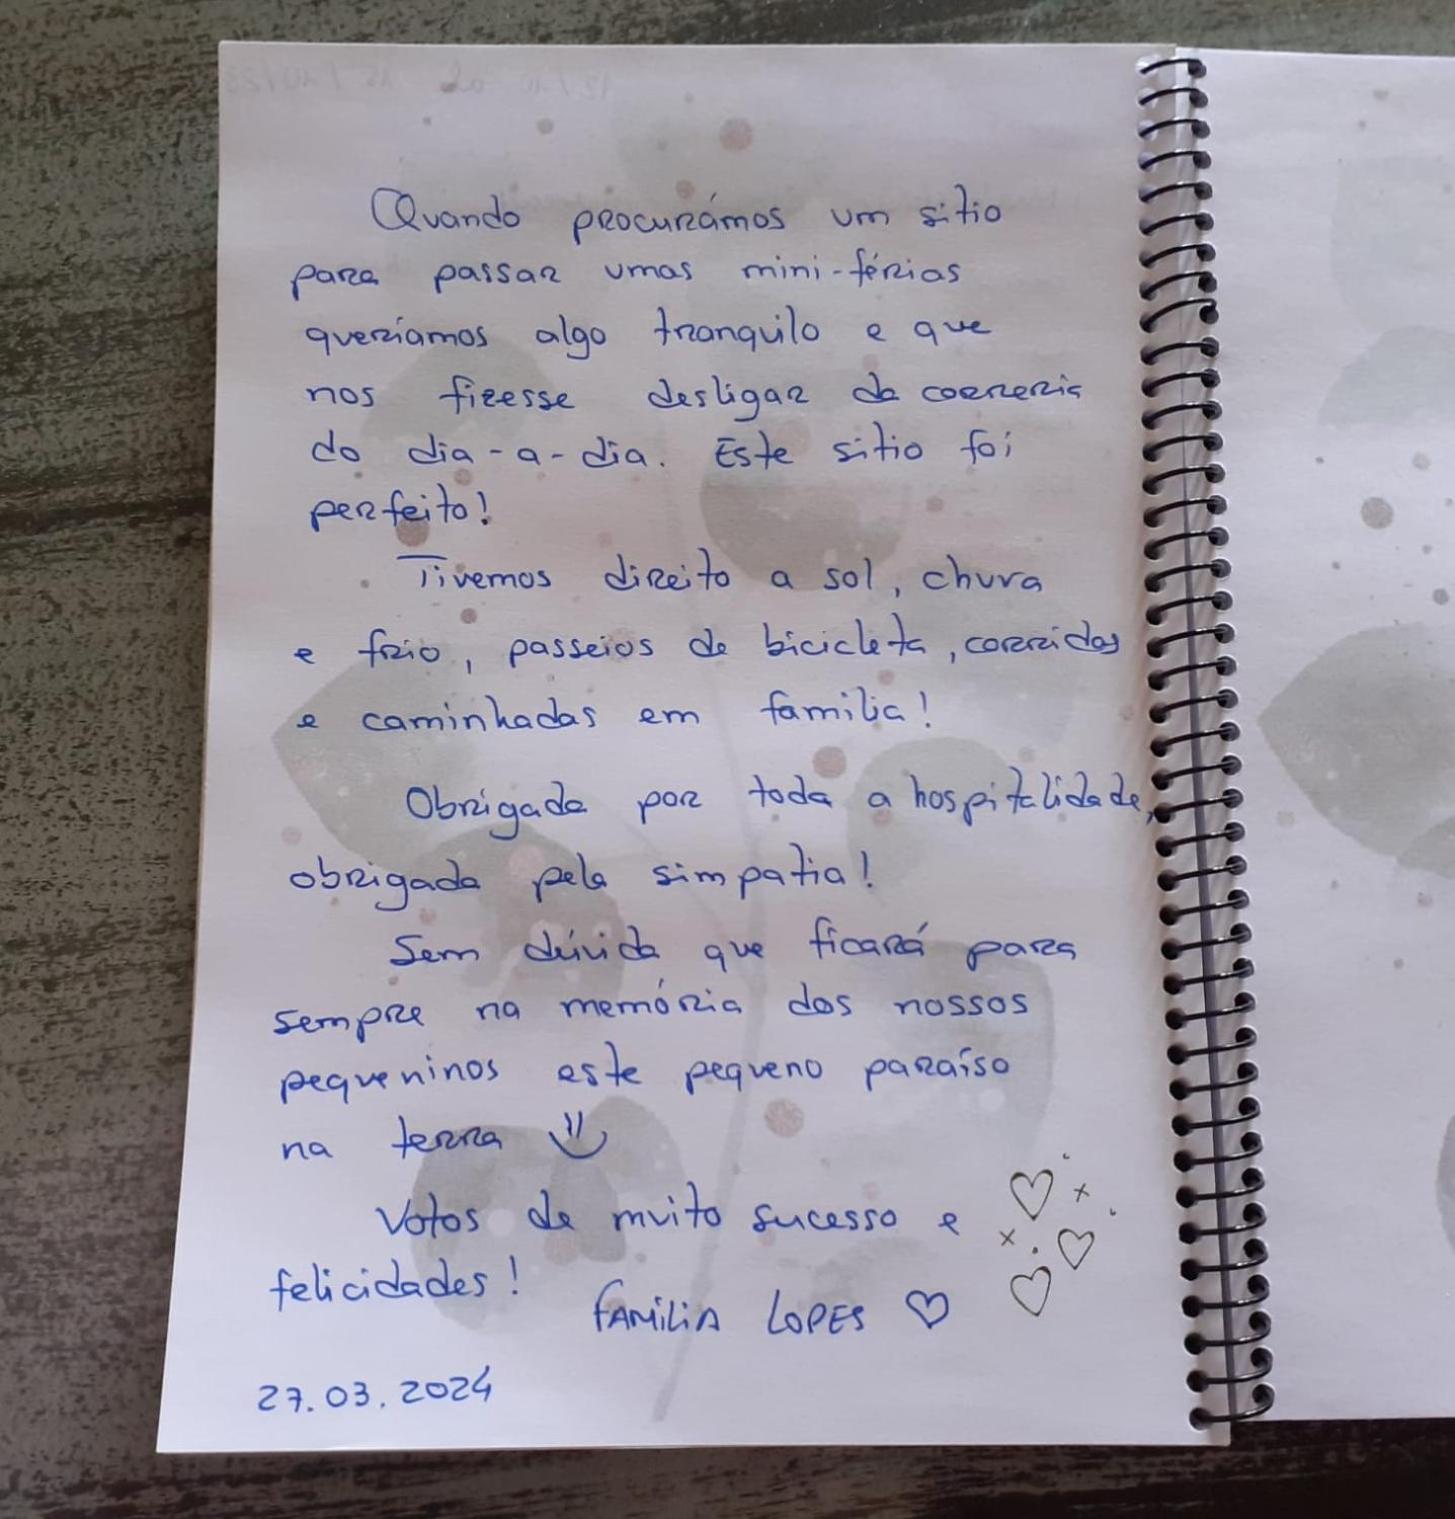 Quando procurámos um sitio
para passar umas mini-férias
queríamos algo tranquilo e que
nos fizesse desligar da correria
do dia-a-dia. Este sitio foi
perfeito!
Tivemos direito a sol, chuva
e frio, passeios de bicicleta, corridas
e caminhadas em familia!
Obrigada por toda a hospitalidade,
obrigada pela simpatia!
Sem dúvida que ficará para
sempre na memória dos nossos
pequeninos este pequeno paraíso
na terra
Votos de muito sucesso e
felicidades!
FAMÍLIA LOPES ♡
27.03.2024